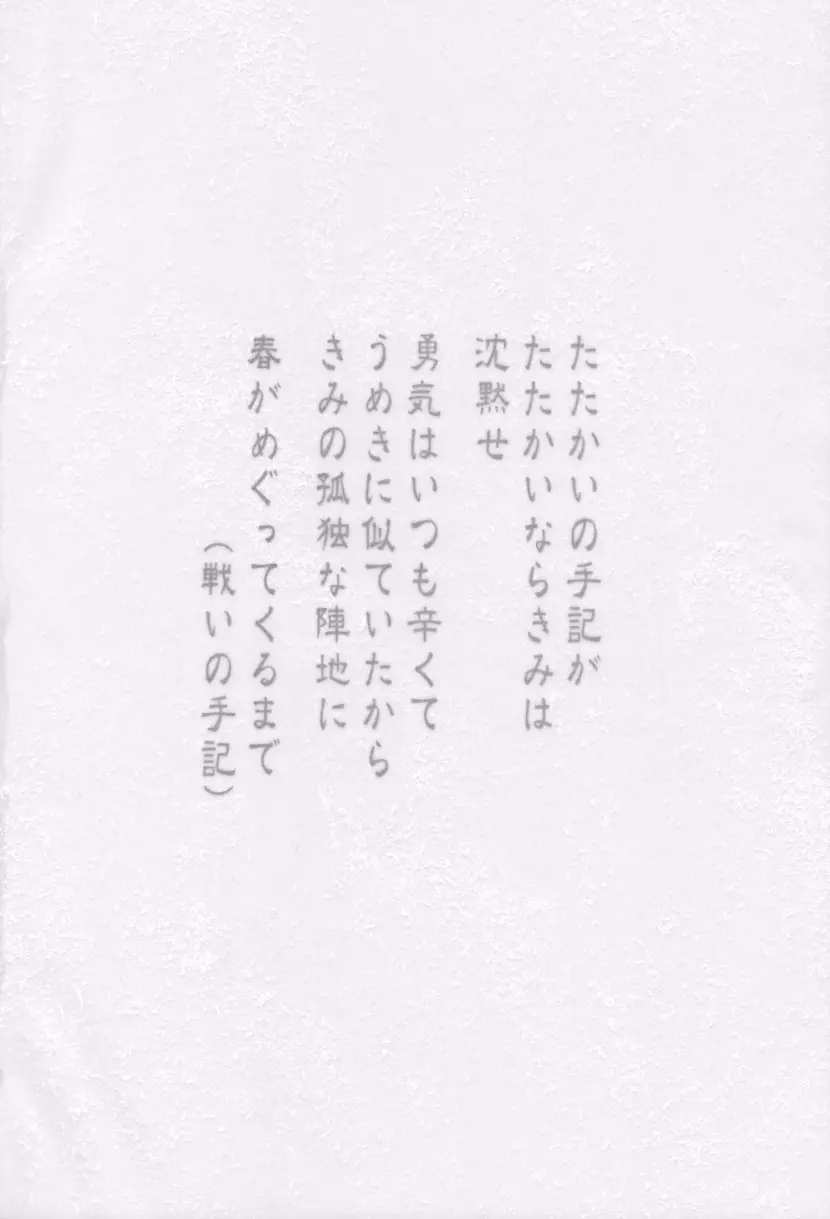 たたかいの手記が
たたかいならきみは
沈黙せ
勇気はいつも辛くて
うめきに似ていたから
きみの孤独な陣地に
春がめぐってくるまで
(戦いの手記)